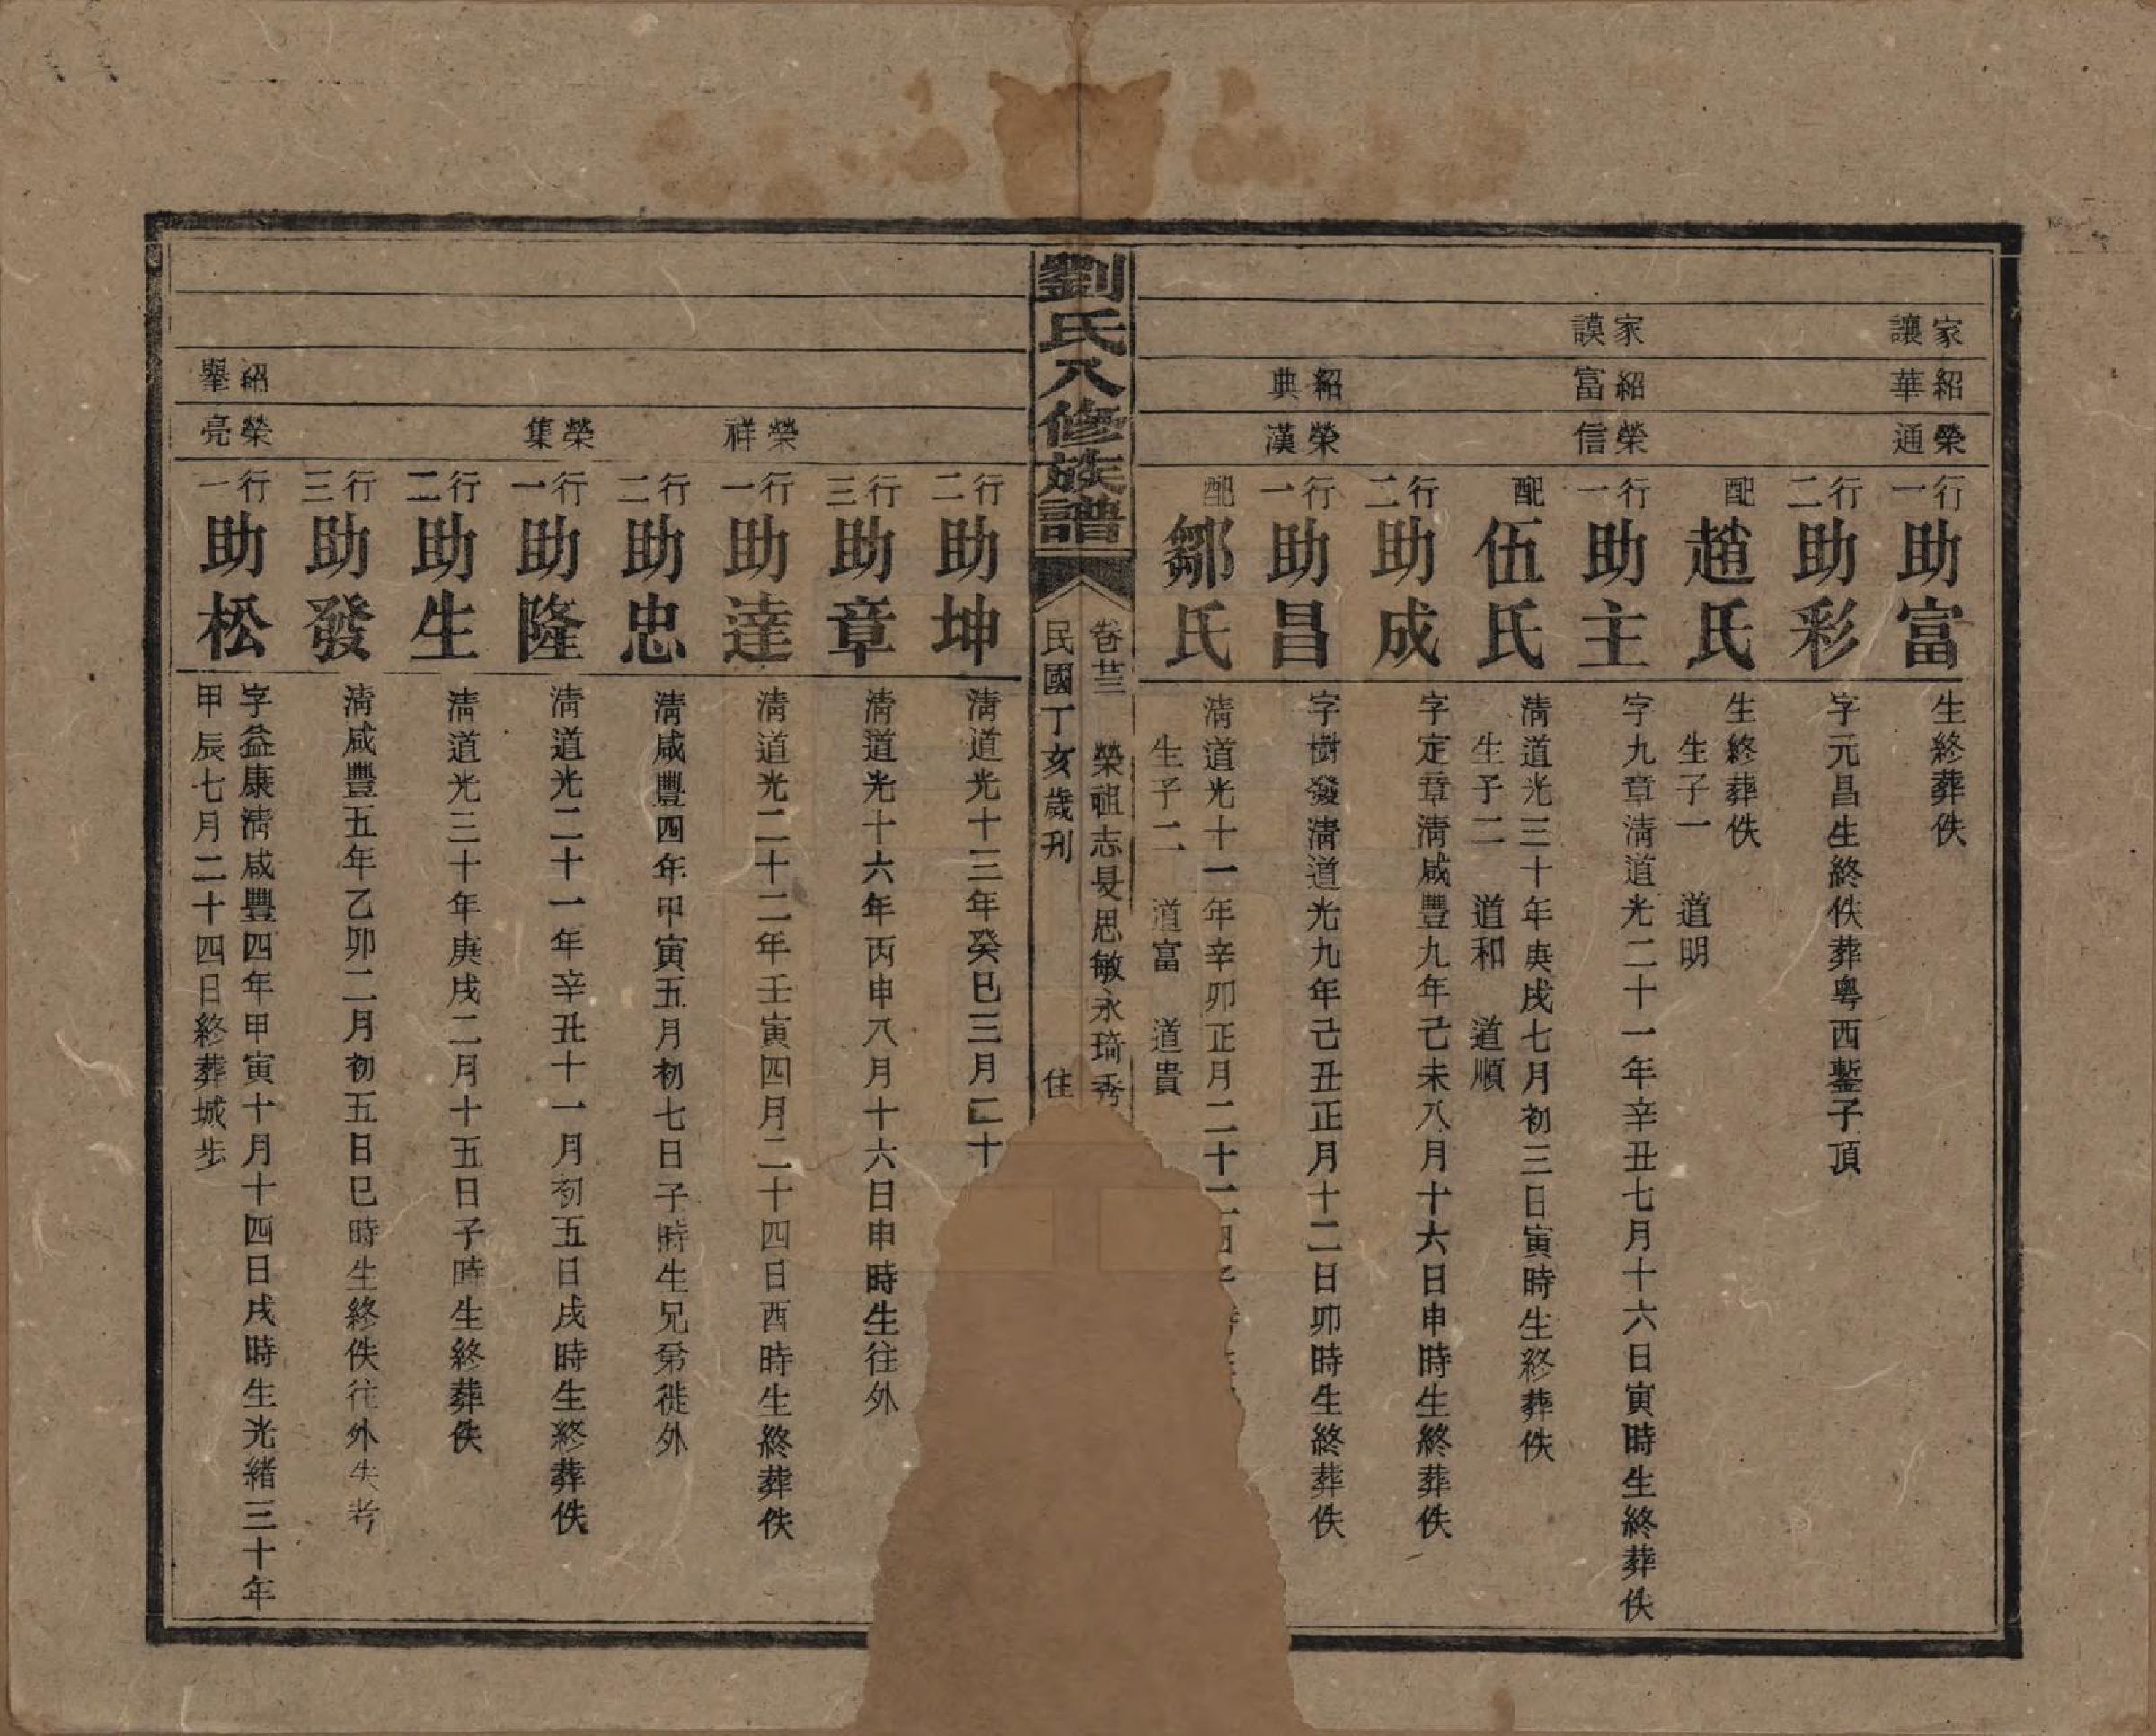 家讓
紹華
榮通
行一
助富
生終葬佚
行二
助彩
字元昌生終佚葬粵西鏨子頂
配
趙氏
生終葬佚
生子一 道明
家謨
紹富
榮信
行一
助主
字九章淸道光二十一年辛丑七月十六日寅時生終葬佚
配
伍氏
淸道光三十年庚戌七月初三日寅時生終葬佚
生子二 道和 道順
行二
助成
字定章淸咸豐九年己未八月十六日申時生終葬佚
紹典
榮漢
行一
助昌
字樹發淸道光九年己丑正月十二日卯時生終葬佚
配
鄒氏
淸道光十一年辛卯正月二十
生子二 道富 道貴
劉氏八修族譜
卷廿三 榮祖志旻思敏永琦秀
民國丁亥歲刊 住
行二
助坤
淸道光十三年癸巳三月二十
行三
助章
淸道光十六年丙申八月十六日申時生往外
榮祥
行一
助達
淸道光二十二年壬寅四月二十四日酉時生終葬佚
行二
助忠
淸咸豐四年甲寅五月初七日子時生兄弟徙外
榮集
行一
助隆
淸道光二十一年辛丑十一月初五日戌時生終葬佚
行二
助生
淸道光三十年庚戌二月十五日子時生終葬佚
行三
助發
淸咸豐五年乙卯二月初五日巳時生終佚往外失考
紹舉
榮亮
行一
助松
字益康淸咸豐四年甲寅十月十四日戌時生光緒三十年
甲辰七月二十四日終葬城步